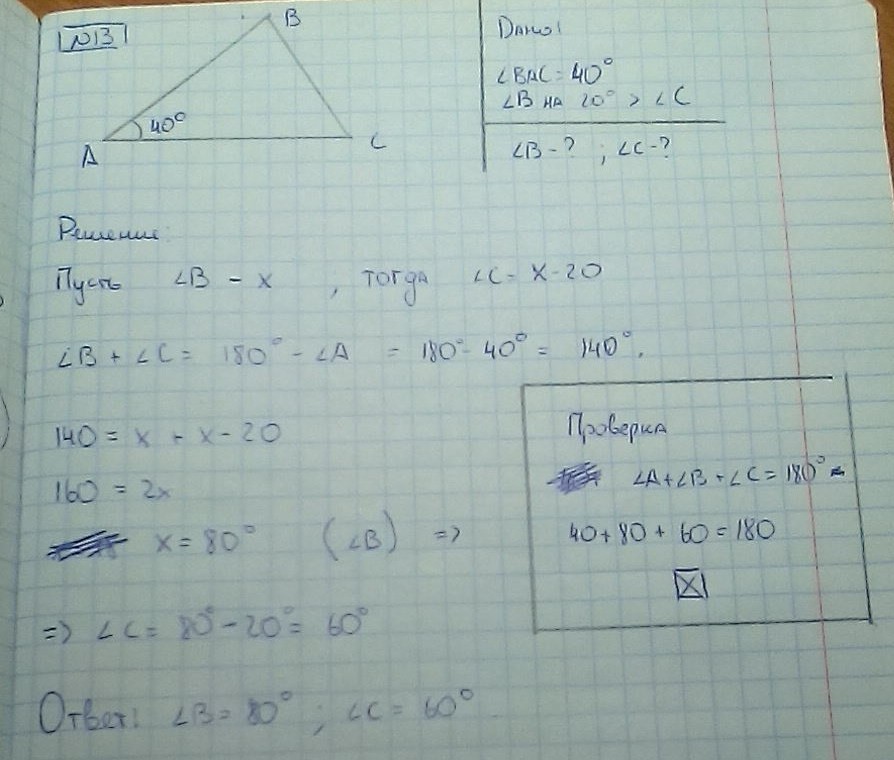 N13
B
40°
A
C
Дано:
∠BAC = 40°
∠B на 20° > ∠C
∠B - ? ; ∠C - ?
Решение:
Пусть ∠B - x , тогда ∠C = x - 20
∠B + ∠C = 180° - ∠A = 180° - 40° = 140°.
140 = x + x - 20
160 = 2x
x = 80° (∠B) =>
=> ∠C = 80° - 20° = 60°
Ответ: ∠B = 80° ; ∠C = 60°.
Проверка
∠A + ∠B + ∠C = 180°
40 + 80 + 60 = 180